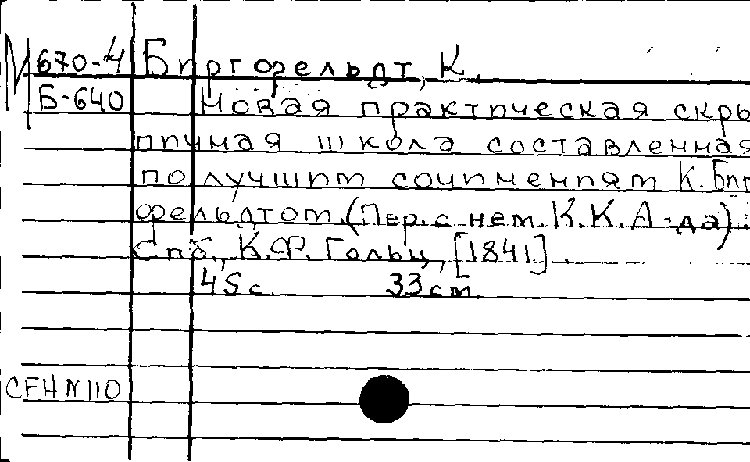 М 670-4 Биргфельдт, К.
Б-640 Новая практическая скры
пичная школа составленная
по лучшим сочинениям К. Бир
фельдтом. (Пер. с нем. К. К. А-да).
Спб., К. Ф. Гольц, [1841].
45 с. 33 см.
СЕН N 110